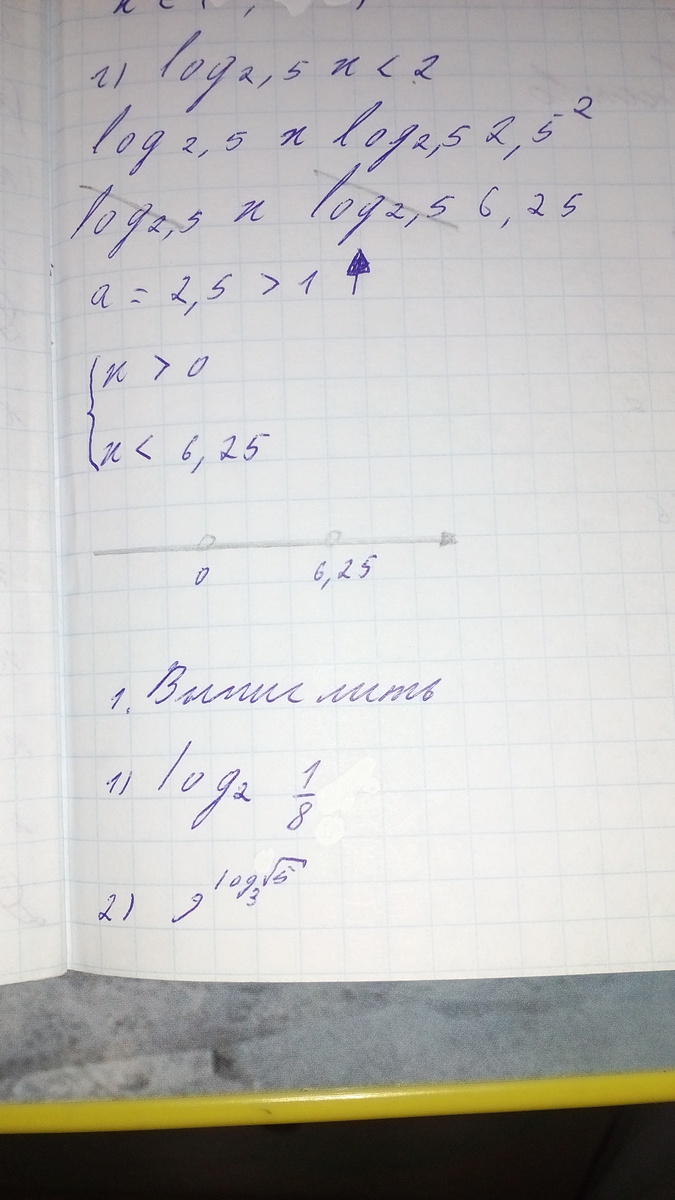 г) log₂,₅ x < 2
log₂,₅ x log₂,₅ 2,5²
log₂,₅ x log₂,₅ 6,25
a = 2,5 > 1 ↑
{ x > 0
x < 6,25
0 6,25
1. Вычислить
1) log₂ 1/8
2) 9^(log₃√5)